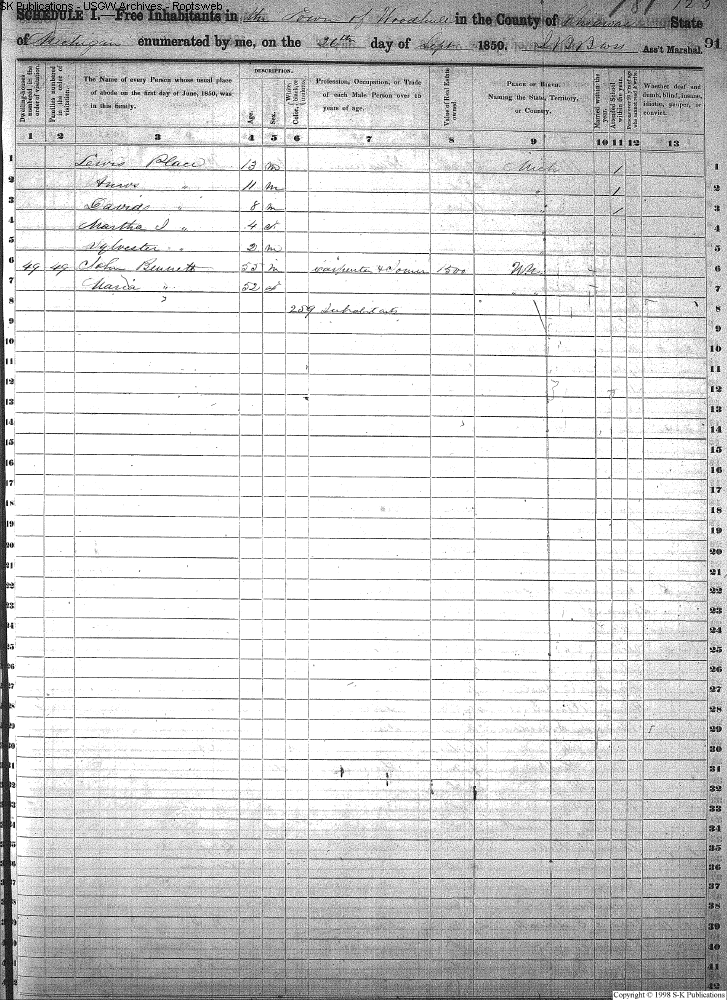 SK Publications - USGW Archives - Rootsweb
SCHEDULE I.—Free Inhabitants in the Town of Woodhull in the County of Shiawassee State
of Michigan enumerated by me, on the 26th day of Sept 1850. Ass't Marshal. 91
Dwelling-houses numbered in the order of visitation.
Families numbered in the order of visitation.
The Name of every Person whose usual place of abode on the first day of June, 1850, was in this family.
DESCRIPTION.
Age.
Sex.
White, Color, black or mulatto.
Profession, Occupation, or Trade of each Male Person over 15 years of age.
Value of Real Estate owned.
PLACE OF BIRTH. Naming the State, Territory, or Country.
Married within the year.
Attended School within the year.
Whether deaf and dumb, blind, insane, idiotic, pauper, or convict.
1 2 3 4 5 6 7 8 9 10 11 12 13
1 Lewis Place 13 m Mich / 1
2 " 11 m " / 2
3 Davids " 8 m / 3
4 Martha J " 4 f 4
5 Sylvester " 2 m 5
6 49 49 John Bennett 55 m 1500 6
7 Maria " 52 f 7
8 259 Inhabitants 8
9 9
10 10
11 11
12 12
13 13
14 14
15 15
16 16
17 17
18 18
19 19
20 20
21 21
22 22
23 23
24 24
25 25
26 26
27 27
28 28
29 29
30 30
31 31
32 32
33 33
34 34
35 35
36 36
37 37
38 38
39 39
40 40
41 41
42 42
Copyright © 1998 S-K Publications